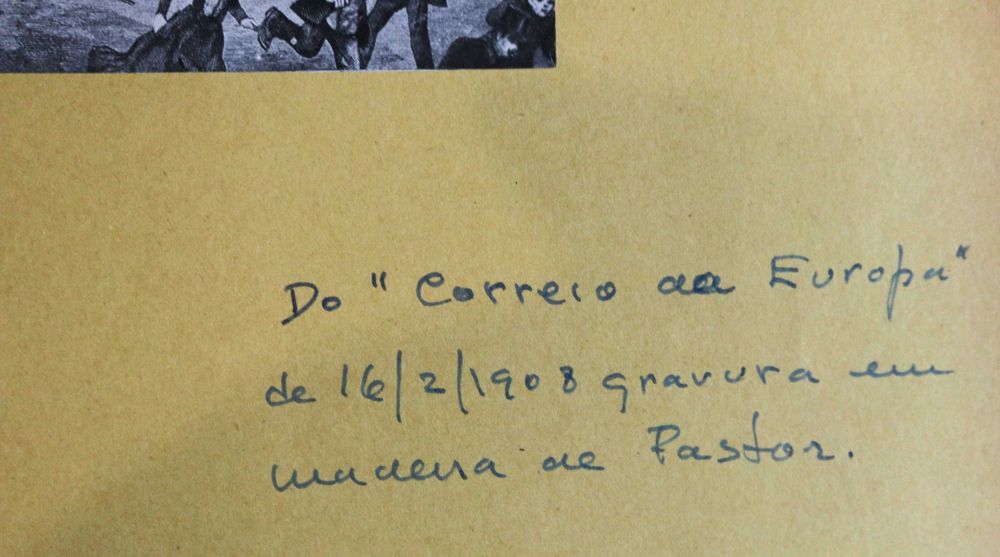 Do "Correio da Europa"
de 16/2/1908 gravura em
madeira de Pastor.